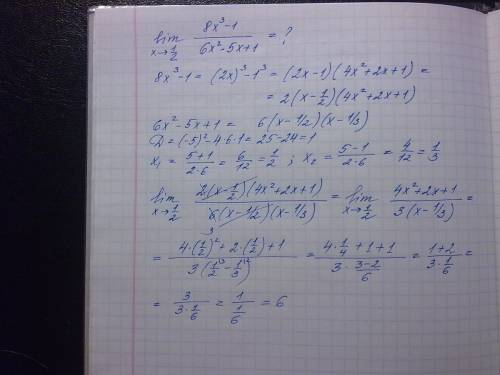 lim x→1/2 (8x³-1)/(6x²-5x+1) = ?
8x³-1 = (2x)³-1³ = (2x-1)(4x²+2x+1) =
= 2(x-1/2)(4x²+2x+1)
6x²-5x+1 = 6(x-1/2)(x-1/3)
D = (-5)²-4·6·1 = 25-24 = 1
x₁ = (5+1)/(2·6) = 6/12 = 1/2 ; x₂ = (5-1)/(2·6) = 4/12 = 1/3
lim x→1/2 (2(x-1/2)(4x²+2x+1))/(6(x-1/2)(x-1/3)) = lim x→1/2 (4x²+2x+1)/(3(x-1/3)) =
3
= (4·(1/2)²+2·(1/2)+1)/(3(1/2³-1/3²)) = (4·1/4+1+1)/(3·(3-2)/6) = (1+2)/(3·1/6) =
= 3/(3·1/6) = 1/(1/6) = 6